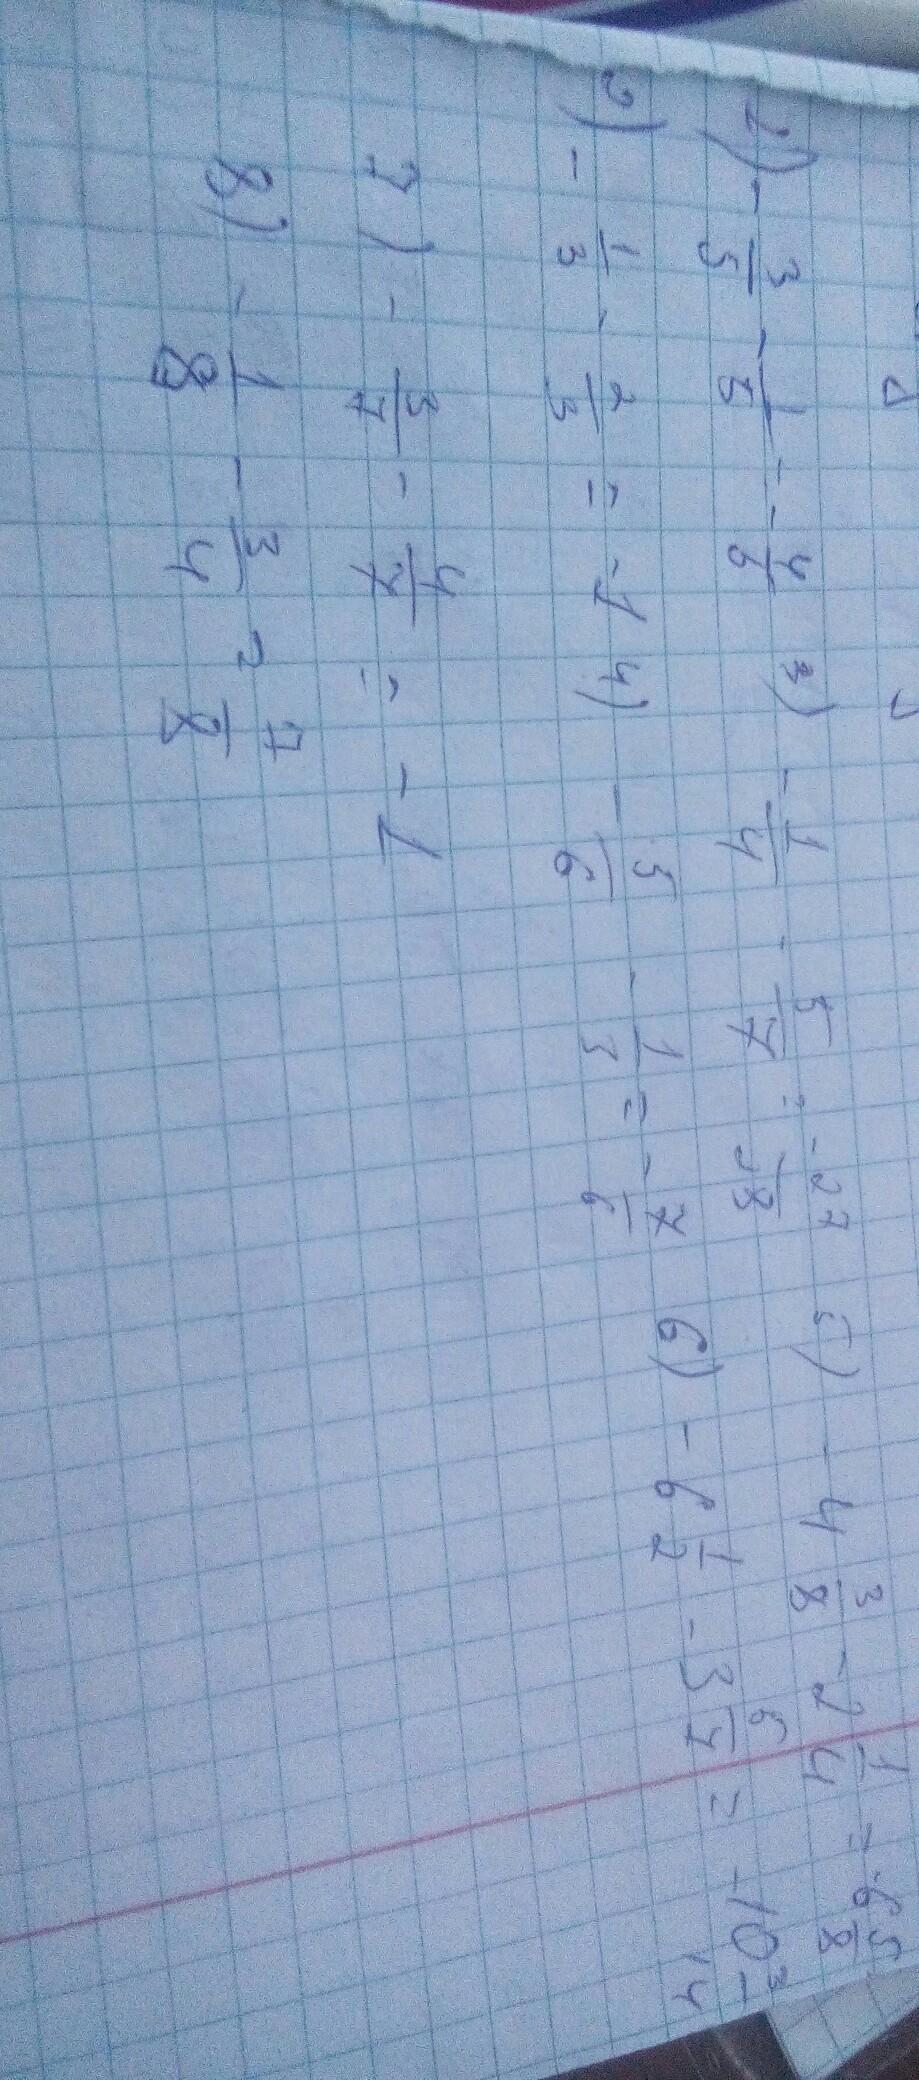 1) -3/5 - 1/5 = -4/5 3) -1/4 - 5/7 = -27/28 5) -4 3/8 - 2 1/4 = -6 5/8
2) -1/3 - 2/3 = -1 4) -5/6 - 1/3 = -7/6 6) -6 1/2 - 3 5/7 = -10 3/14
7) -3/7 - 4/7 = -1
8) -1/8 - 3/4 = 7/8